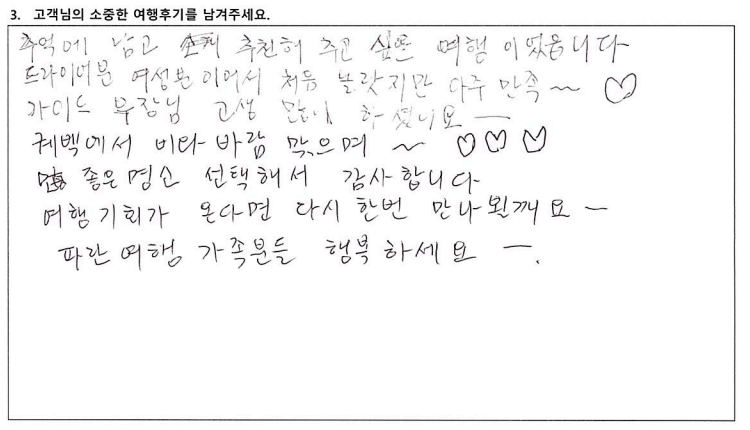 3. 고객님의 소중한 여행후기를 남겨주세요.
추억에 남고 추천해 주고 싶은 여행 이였읍니다
드라이버분 여성분이어서 처음 놀랏지만 아주 만족~ ♡
가이드 부장님 고생 많이 하셨어요 ㅡ
퀘백에서 비와 바람 맞으며 ~ ♡♡♡
좋은명소 선택해서 감사합니다
여행기회가 온다면 다시 한번 만나뵐께요 ㅡ
파란여행 가족분들 행복하세요 ㅡ.